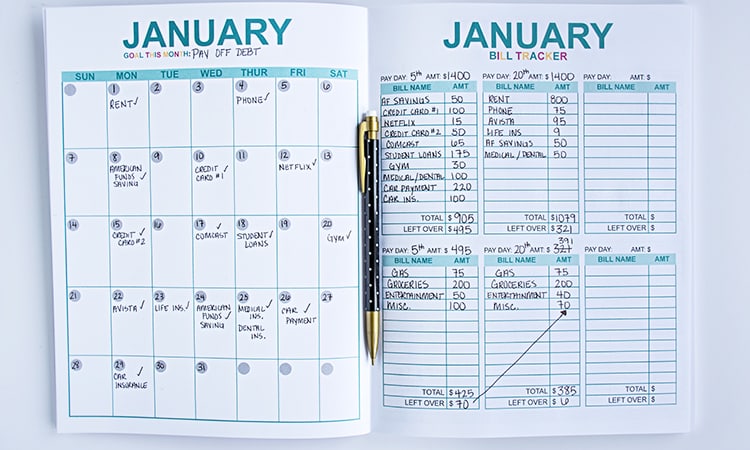 JANUARY
GOAL THIS MONTH: PAY OFF DEBT
SUN MON TUE WED THUR FRI SAT
1 2 3 4 5 6
RENT✓ PHONE✓
7 8 9 10 11 12 13
AMERICAN FUNDS SAVING ✓ CREDIT CARD #1 ✓ NETFLIX✓
14 15 16 17 18 19 20
CREDIT CARD #2 ✓ COMCAST ✓ STUDENT LOANS ✓ GYM✓
21 22 23 24 25 26 27
AVISTA ✓ LIFE INS. ✓ AMERICAN FUNDS SAVING ✓ MEDICAL INS. DENTAL INS. ✓ CAR PAYMENT ✓
28 29 30 31
CAR INSURANCE ✓
JANUARY
BILL TRACKER
PAY DAY: 5th AMT: $1400
BILL NAME AMT
AF SAVINGS 50
CREDIT CARD #1 100
NETFLIX 15
CREDIT CARD #2 50
COMCAST 65
STUDENT LOANS 175
GYM 30
MEDICAL/DENTAL 100
CAR PAYMENT 220
CAR INS. 100
TOTAL $905
LEFT OVER $495
PAY DAY: 20th AMT: $1400
BILL NAME AMT
RENT 800
PHONE 75
AVISTA 95
LIFE INS 9
AF SAVINGS 50
MEDICAL/DENTAL 50
TOTAL $1079
LEFT OVER $321
PAY DAY: AMT: $
BILL NAME AMT
TOTAL $
LEFT OVER $
PAY DAY: 5th AMT: $495
BILL NAME AMT
GAS 75
GROCERIES 200
ENTERTAINMENT 50
MISC. 100
TOTAL $425
LEFT OVER $70
391
PAY DAY: 20th AMT: $321
BILL NAME AMT
GAS 75
GROCERIES 200
ENTERTAINMENT 40
MISC. 70
TOTAL $385
LEFT OVER $6
PAY DAY: AMT: $
BILL NAME AMT
TOTAL $
LEFT OVER $